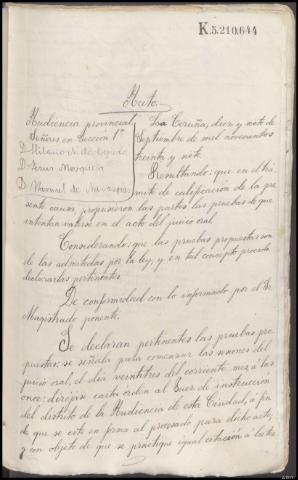 K.5.210.644
Auto.
Audiencia provincial
Señores en Sección 1ª
D.
D. Mosquera
D. Manuel de
La Coruña, diez y siete de
Septiembre de mil novecientos
treinta y siete.
Resultando: que en el trá-
mite de calificación de la pre
sente causa propusieron las partes las pruebas de que
intentan valerse en el acto del juicio oral
Considerando: que las pruebas propuestas son
de las admitidas por la ley, y en tal concepto procede
declararlas pertinentes
De conformidad con lo informado por el Sr.
Magistrado ponente.
Se declaran pertinentes las pruebas pro
puestas: se señala para comenzar las sesiones del
juicio oral, el día veintitres del corriente mes, a las
once: dirijase carta orden al Juez de instrucción
del distrito de la Audiencia de esta Ciudad, a fin
de que se cite en forma al procesado para dicho acto,
y con objeto de que se practique igual citación a los tes